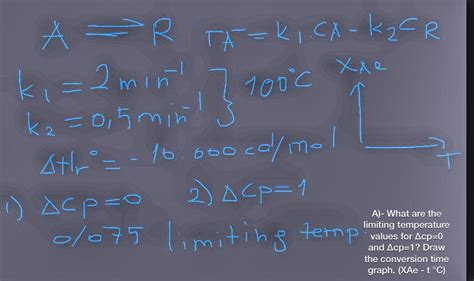 A ⇌ R   -rA = k1.CA - k2CR
k1 = 2 min⁻¹
k2 = 0,5 min⁻¹ } 100°C
XAe
T
ΔHr° = -10.000 cal/mol
1) ΔCp=0   2) ΔCp=1
0/075 limiting temp
A)- What are the
limiting temperature
values for Δcp=0
and Δcp=1? Draw
the conversion time
graph. (XAe - t °C)